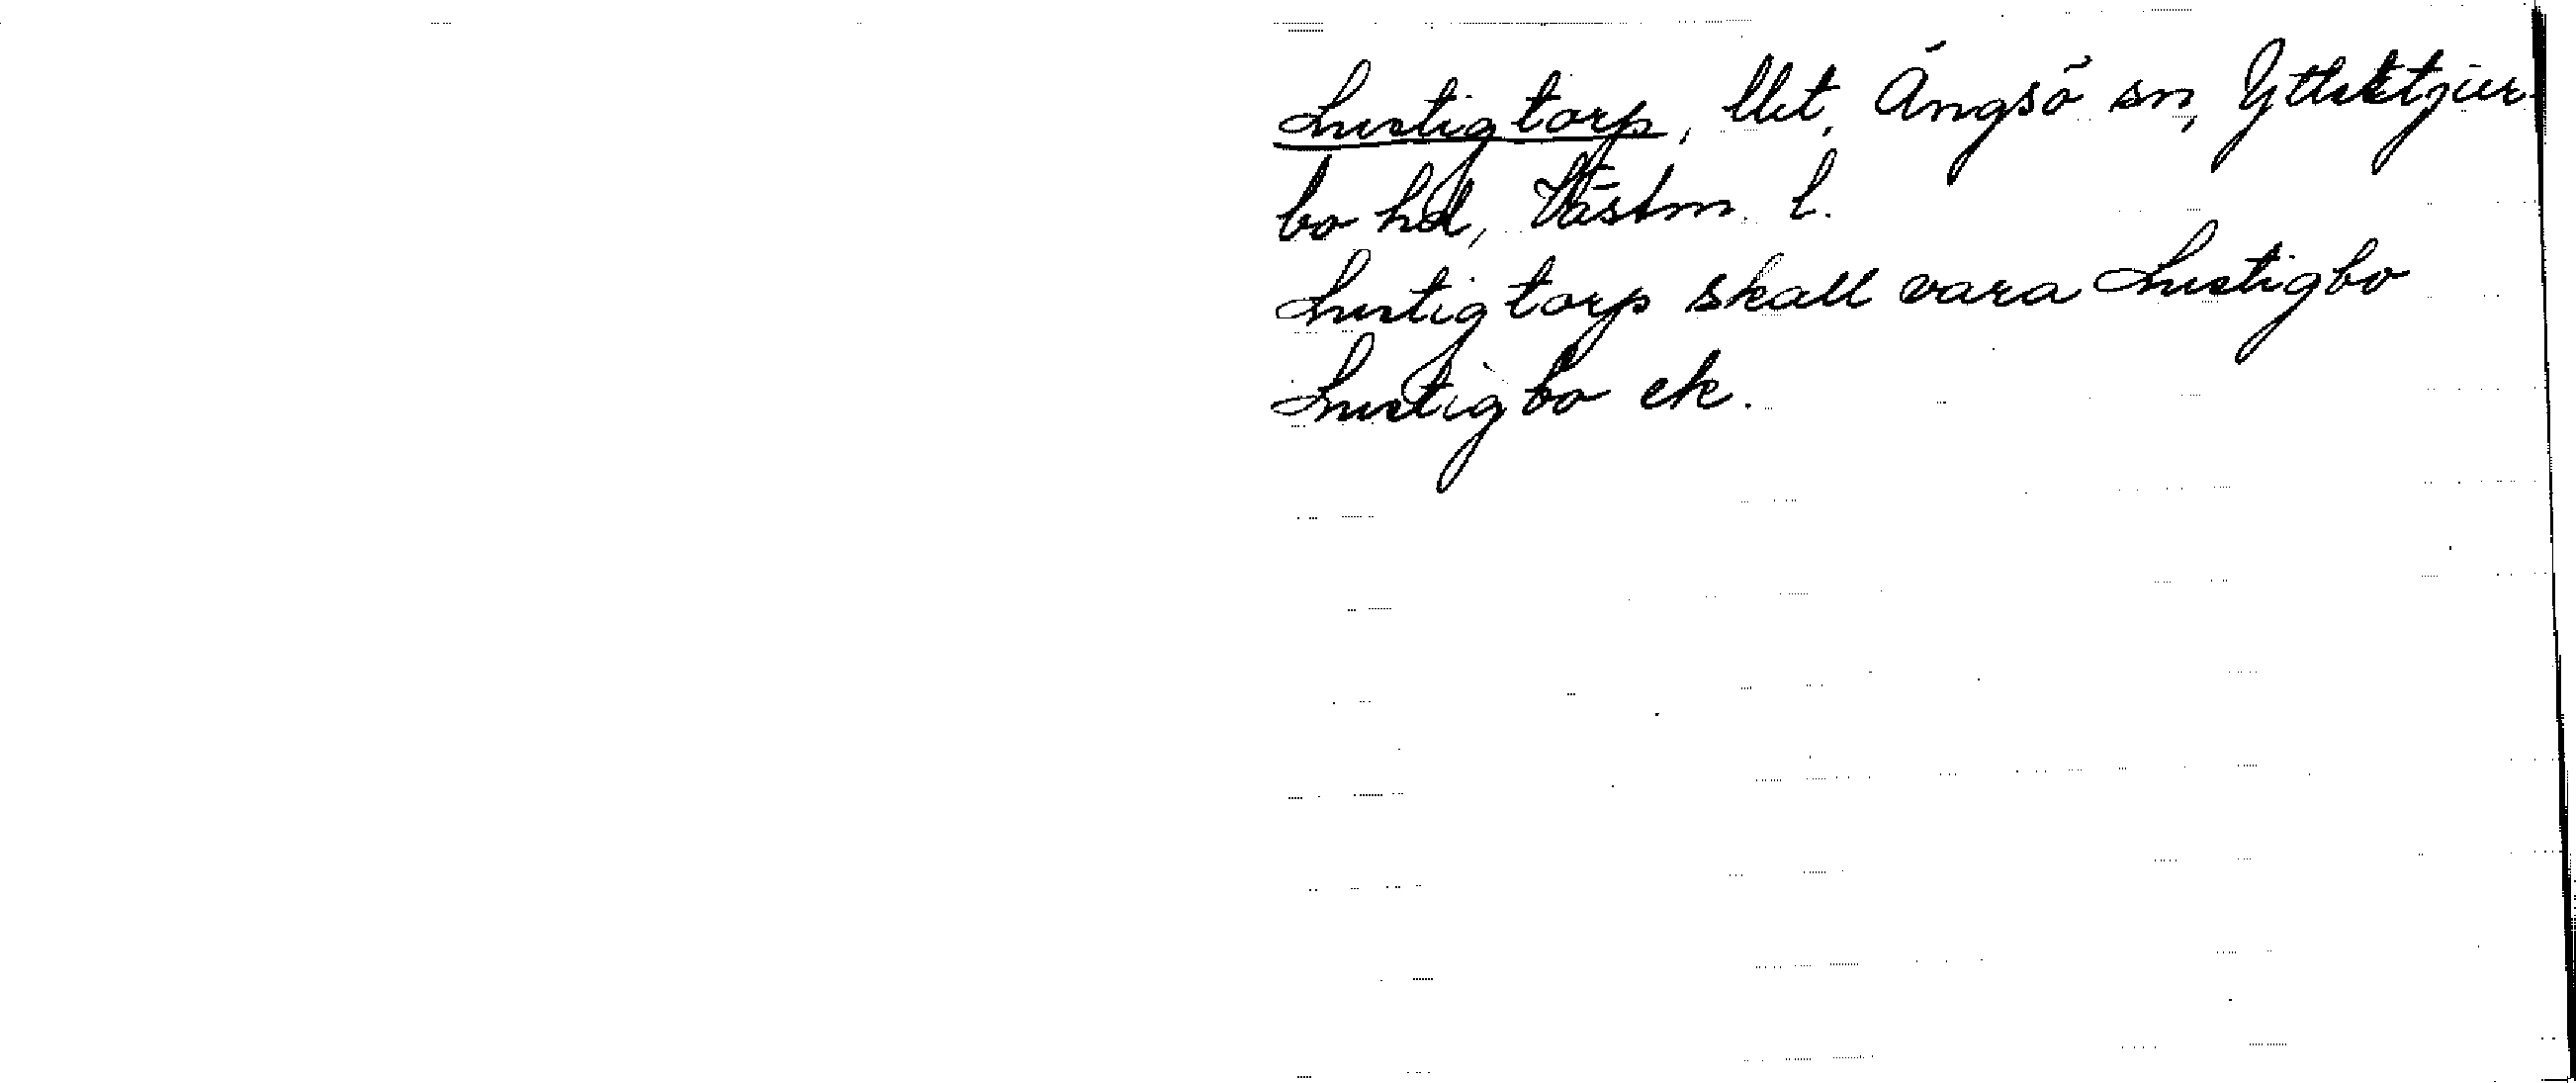 Lustigtorp, llet, Ängsö sn, Yttertjur-
bo hd, Västm. l.
Lustigtorp skall vara Lustigbo
Lustigbo ek.